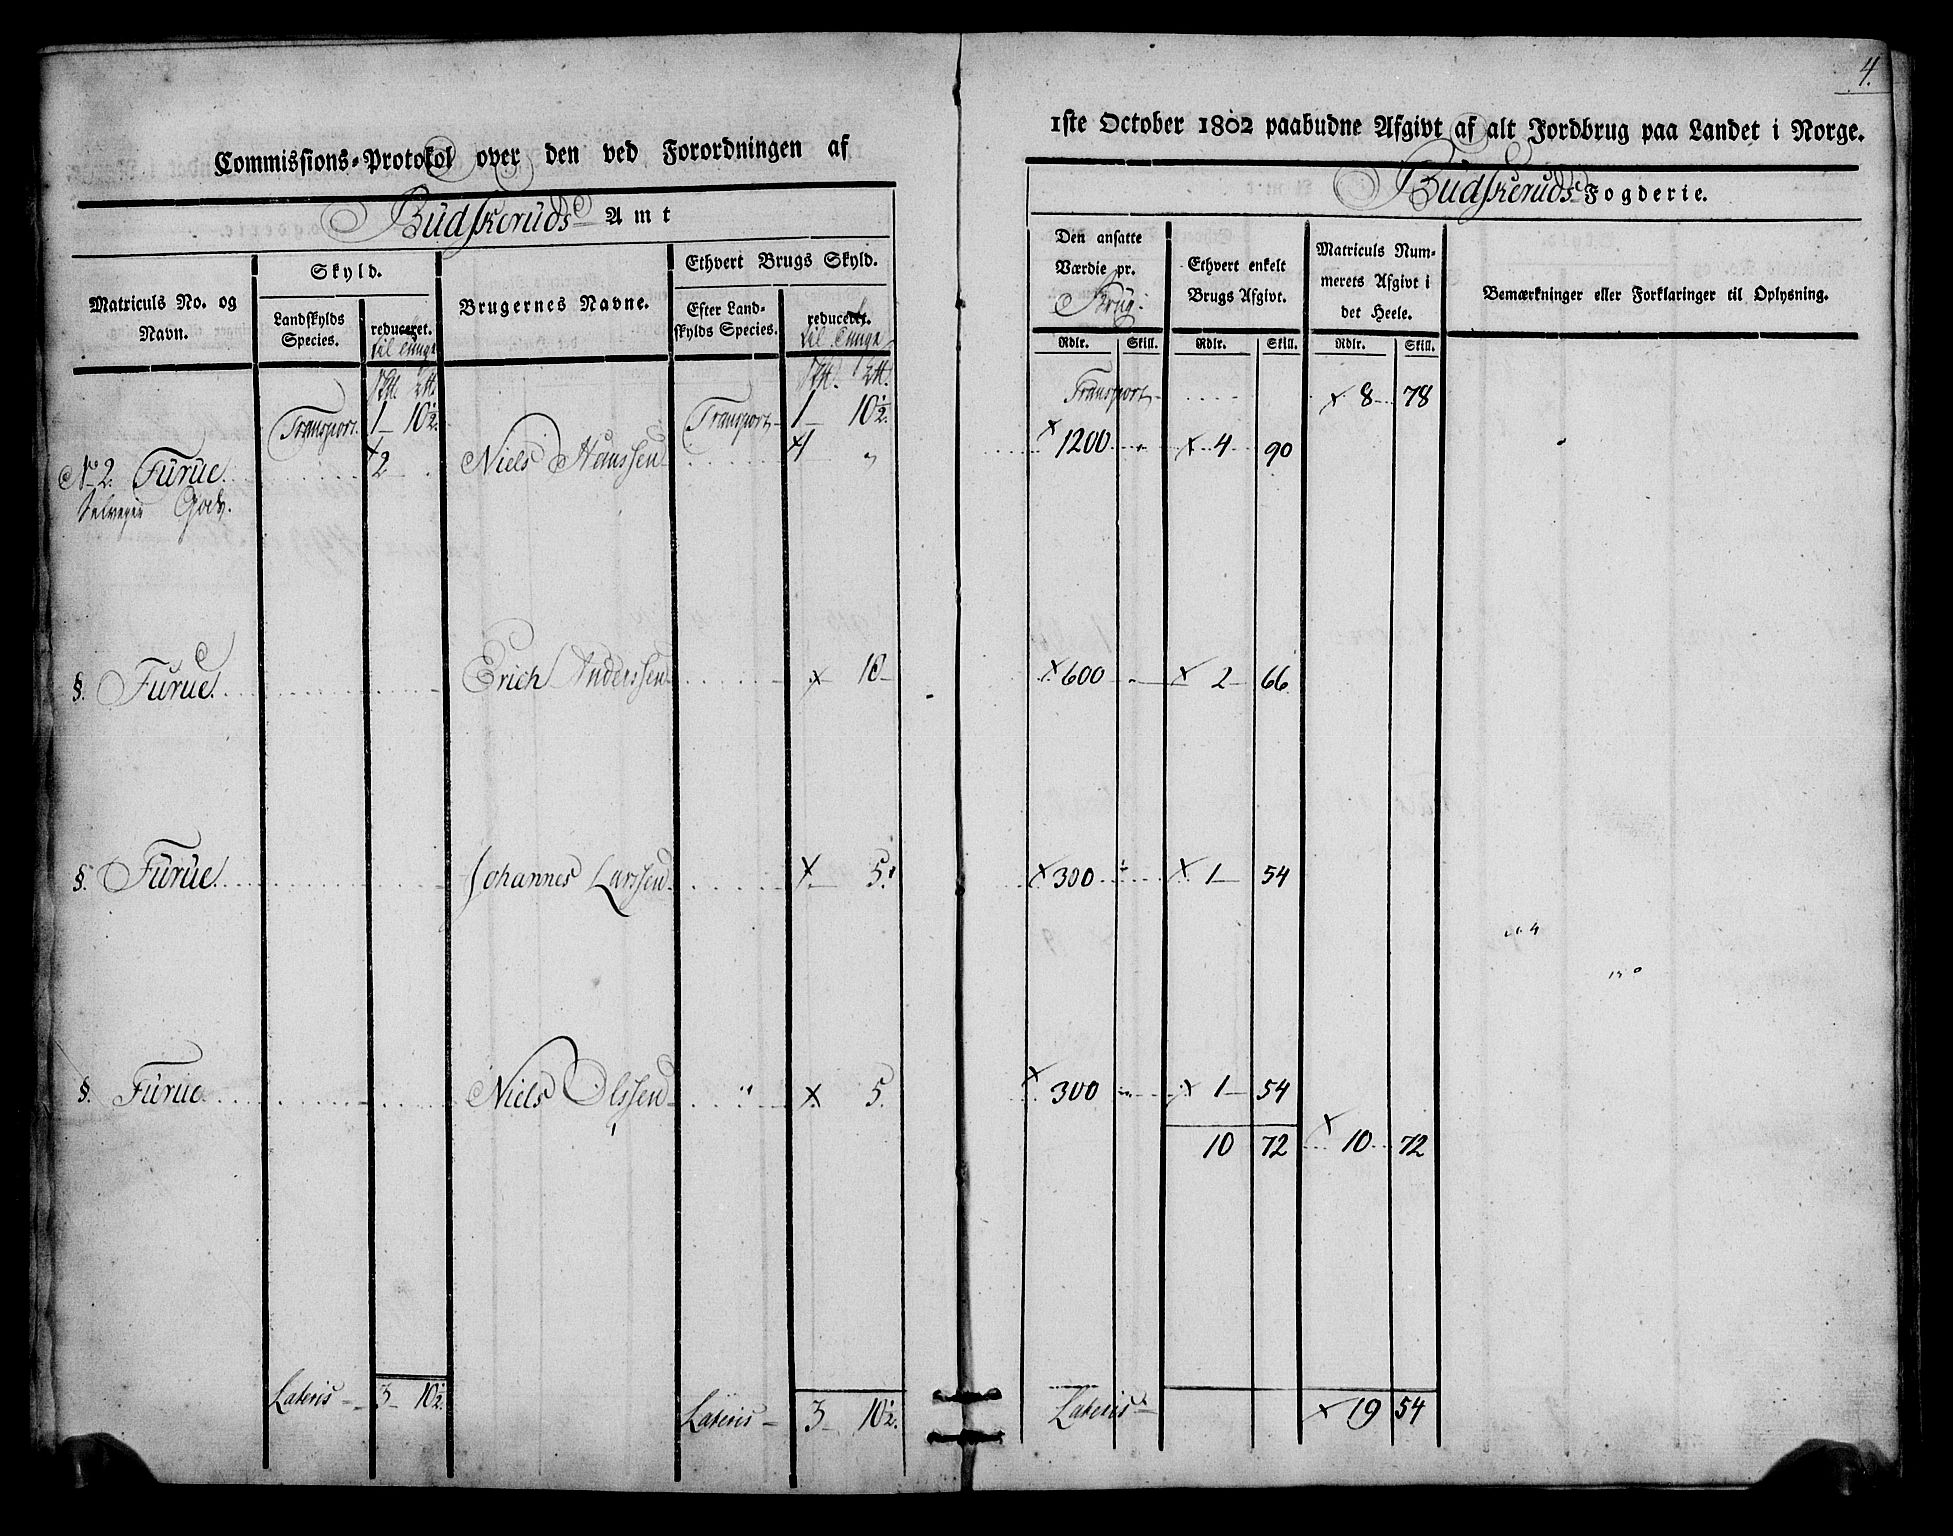 4.
Commissions-Protokol over den ved Forordningen af
1ste October 1802 paabudne Afgivt af alt Jordbrug paa Landet i Norge.
Budskeruds Amt
Budskeruds Fogderie.
Matriculs No. og Navn.
Skyld.
Landskylds Species.
reduceret. til Tunge
Brugernes Navne.
Ethvert Brugs Skyld.
Efter Landskylds Species.
reduceret. til Tunge
Den ansatte Værdie pr. Brug.
Ethvert enkelt Brugs Afgivt.
Matriculs Nummerets Afgivt i det Heele.
Bemærkninger eller Forklaringer til Oplysning.
Rdlr. Skill. Rdlr. Skill. Rdlr. Skill.
Transport 1 10½ Transport 1 10½ Transport x 8 78
No 2. Furue 2 Niels Hanssen 1 " x 1200 x 4 90
Selveger Gods.
§. Furue Erich Anderssen x 10 x 600 x 2 66
§. Furue Johannes Larssen x 5 x 300 x 1 54
§. Furue Niels Olssen " x 5 x 300 x 1 54
10 72 x 10 72
Lateris 3 10½ Lateris 3 10½ Lateris x 19 54